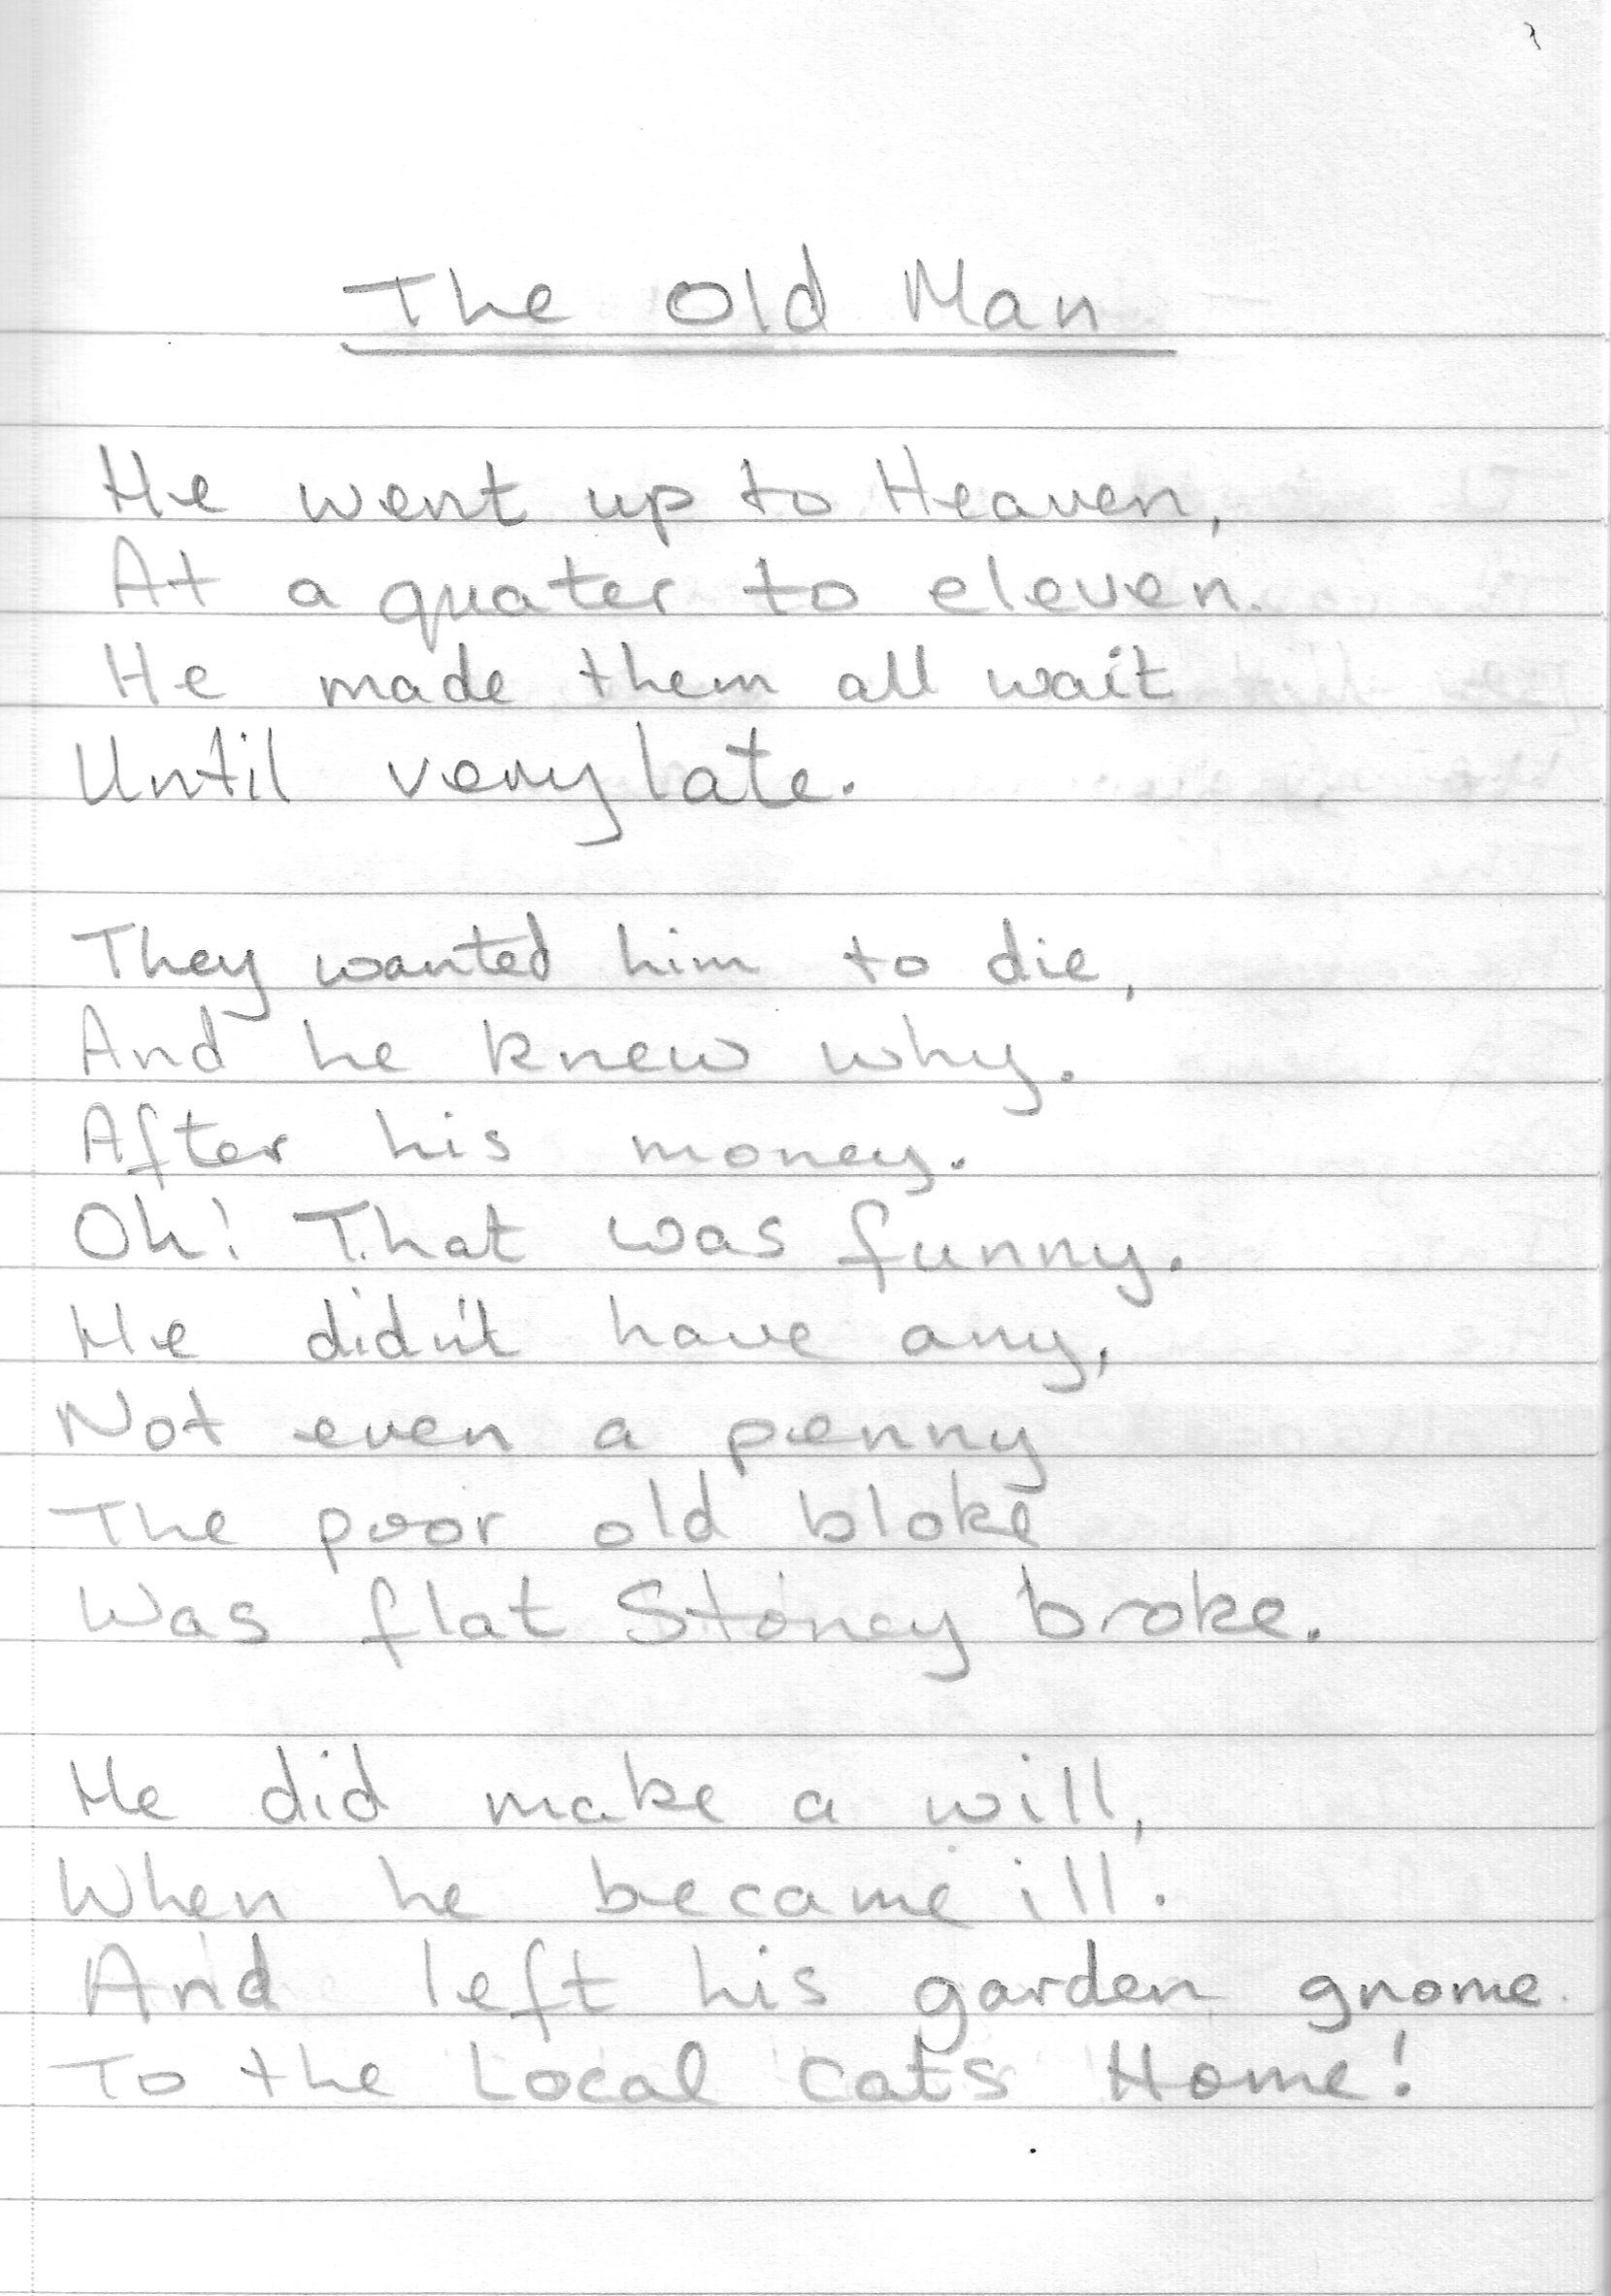 The Old Man
He went up to Heaven,
At a quater to eleven.
He made them all wait
Until very late.
They wanted him to die,
And he knew why.
After his money.
Oh! That was funny.
He didn't have any,
Not even a penny
The poor old bloke
Was flat Stoney broke.
He did make a will,
When he became ill.
And left his garden gnome
To the Local cats Home!